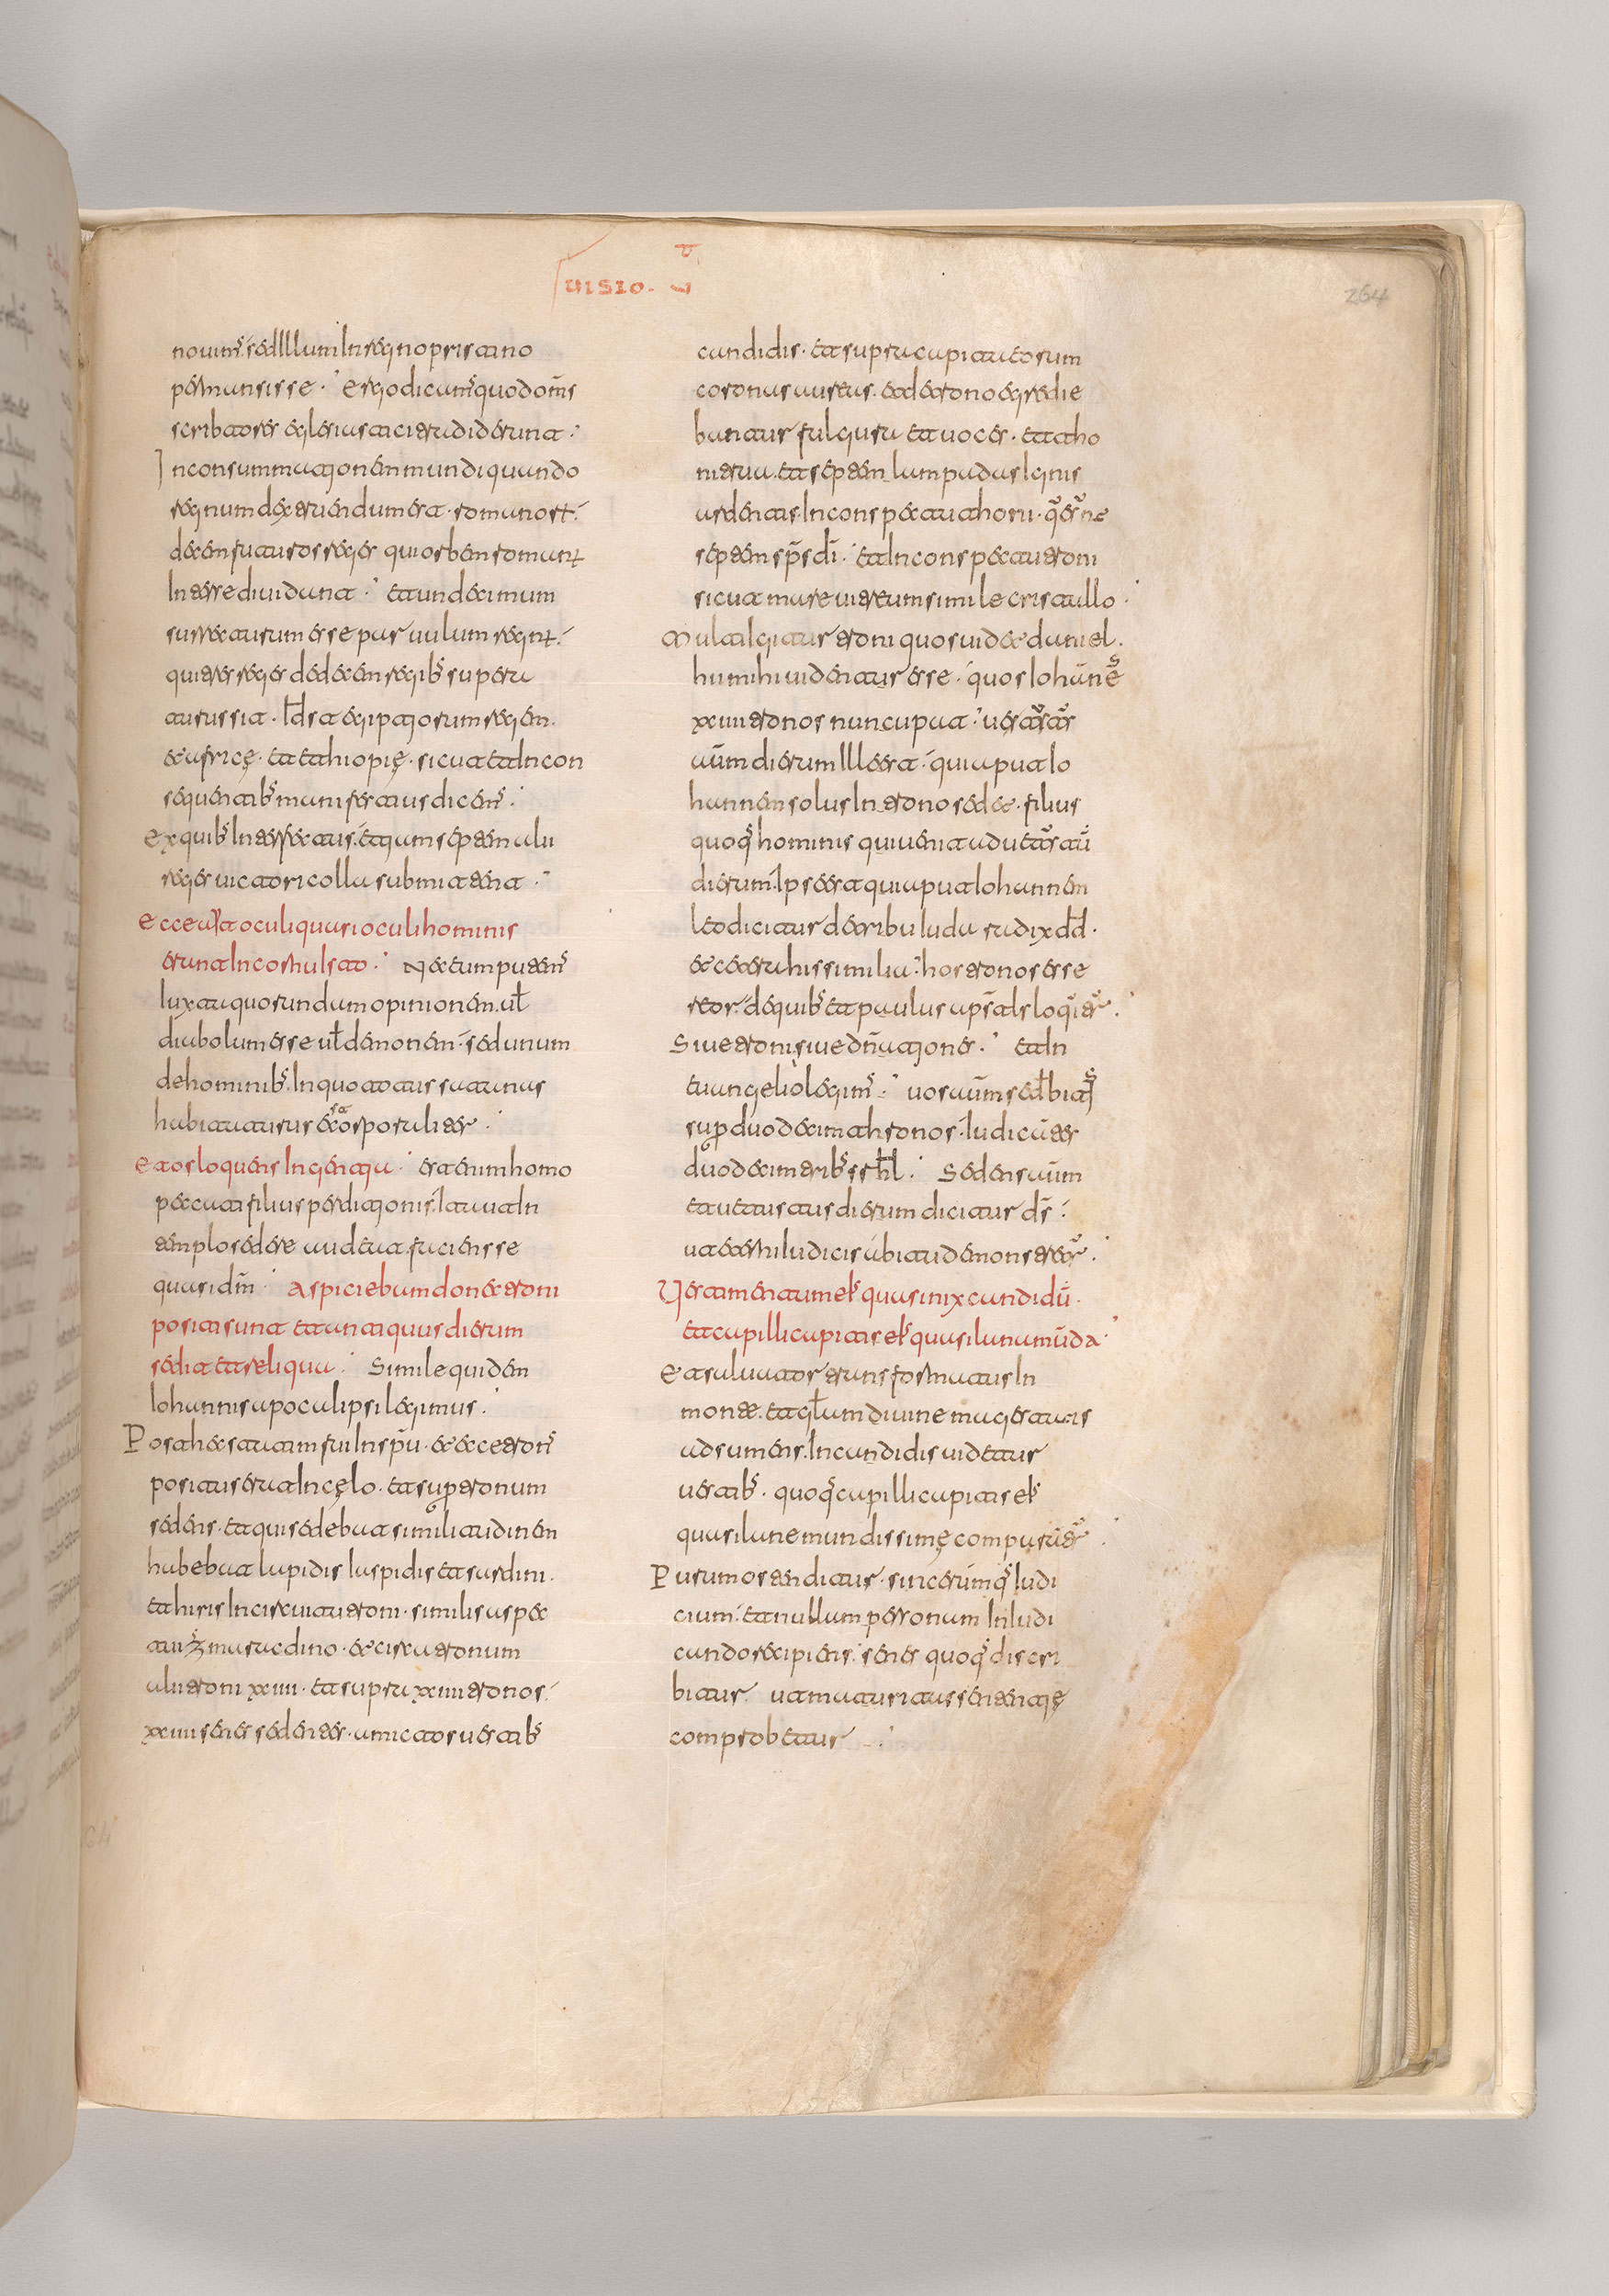 uisio. U
264
nouimˢ. sed Illum In regno pristino
permansisse. Ergo dicamˢ quod om̄s
scribtores eglesiastici tradiderunt.
In consummatjonem mundi quando
regnum dextruendum est. romanorū.
decem futuros reges qui orbem romanū
Inter se dividant. et undecimum
surrecturum esse paruulum regem.
qui tres reges de decem regibˢ supera
turus sit. Id est egiptjorum regem.
et africę. et ethiopię. sicut et In con
sequentibˢ manifestius dicemˢ.
Ex quibˢ Interfectis. etjam septem alii
reges uictori colla submittent.
Ecce ait oculi quasi oculi hominis
erant In cornu Isto. Ne eum putemˢ
luxta quorundam opinionem. ul
diabolum esse ul demonem. sed unum
de hominibˢ. In quo totus satanas
habitaturus est corporaliter.
Et os loquens Ingentja. est enim homo
peccati filius perditjonis. Ita ut In
templo sedere audeat. faciens se
quasi dm̄. Aspiciebam donec troni
positi sunt et antiquus dierum
sedit et reliqua. Simile quid in
Iohannis apocalipsi legimus.
Post hec statim fui In spū. et ecce tronˢ
positus erat In cęlo. et supra tronum
sedens. et qui sedebat similitudinem
habebat lapidis Iaspidis et sardini.
et hiris In circuitu troni. similis aspec
tui zmaracdino. et circa tronum
alii troni xxiiii. et supra xxiiii tronos.
xxiiii senes sedentes. amicto uestibˢ
candidis. et supra capita eorum
coronas aureas. et de trono egredie
bantur fulgura et uoces. et tho
nitrua. et septem lampadas Ignis
ardentis. In conspectu throni. que sūt
septem sp̄s dī. et In conspectu troni
sicut mare uitreum simile cristallo.
Multi Igitur troni quos uidet daniel.
hii mihi uidentur esse. quos Iohānes
xxiiii tronos nuncupat. uetustus
aūm dierum Ille est. qui aput Io
hannem solus In trono sedet. filius
quoqˢ hominis qui uenit ad uetustū
dierum. Ipse est qui aput Iohannem
leo dicitur de tribu Iuda radix dd̄.
et cetera his similia. hos tronos esse
reor. de quibˢ et paulus apsls loqitur.
Siue troni. siue dn̄atjones. et In
euangelio legimˢ. uos aūm sedebitis
super duodecim thronos. Iudicātes
duodecim tribˢ srhl. Sedens aūm
et uetustus dierum dicitur dš.
ut eterni Iudicis habitudo demonstretur.
Uestimentum eiˢ quasi nix candidū.
et capilli capitis eiˢ quasi lana mūda.
Et saluator transformatus In
monte. et glam diuine magestatis
adsumens. In candidis uidetur
uestibˢ. quoqˢ capilli capitis eiˢ
quasi lane mundissimę comparātur.
Purum ostenditur. sincerumqˢ Iudi
cium. et nullum personam In Iudi
cando recipiens. senes quoqˢ discri
bitur. ut maturitas sententję
comprobetur.